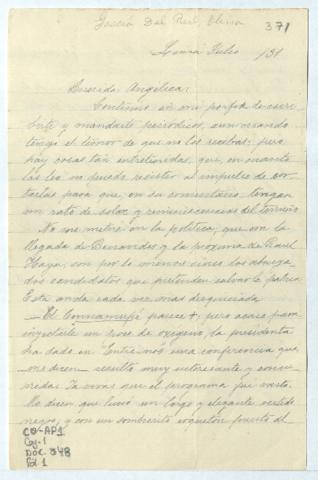 García Del Real, Elvira
371
Lima Julio /31
Querida Angélica:
Continúo en mi porfía de escri-
birte y mandarte periódicos, aun cuando
tengo el temor de que no los recibas; pero
hay cosas tan entretenidas, que, en cuanto
las leo no puedo resistir al impulso de
para que, en su comentario, tengan
un rato de solaz y reminiscencias del terruño
No me meteré en la política, que con la
llegada de y la próxima de Raul
Haya, son por lo menos cinco los abnega
dos candidatos que pretenden salvar la patria
Esta anda cada vez más desquiciada
— El parece +, pero acaso para
inyectarle un poco de oxígeno, la presidenta
ha dado en "Entre nous" una conferencia que
me dicen resultó muy interesante y concu-
rrida. Ya verás que el programa fué vasto.
Me dicen que lució un largo y elegante vestido
negro, y con un sombrerito coquetón puesto al
CO-AP1
Cj. 1
DOC. 348
Fol. 1